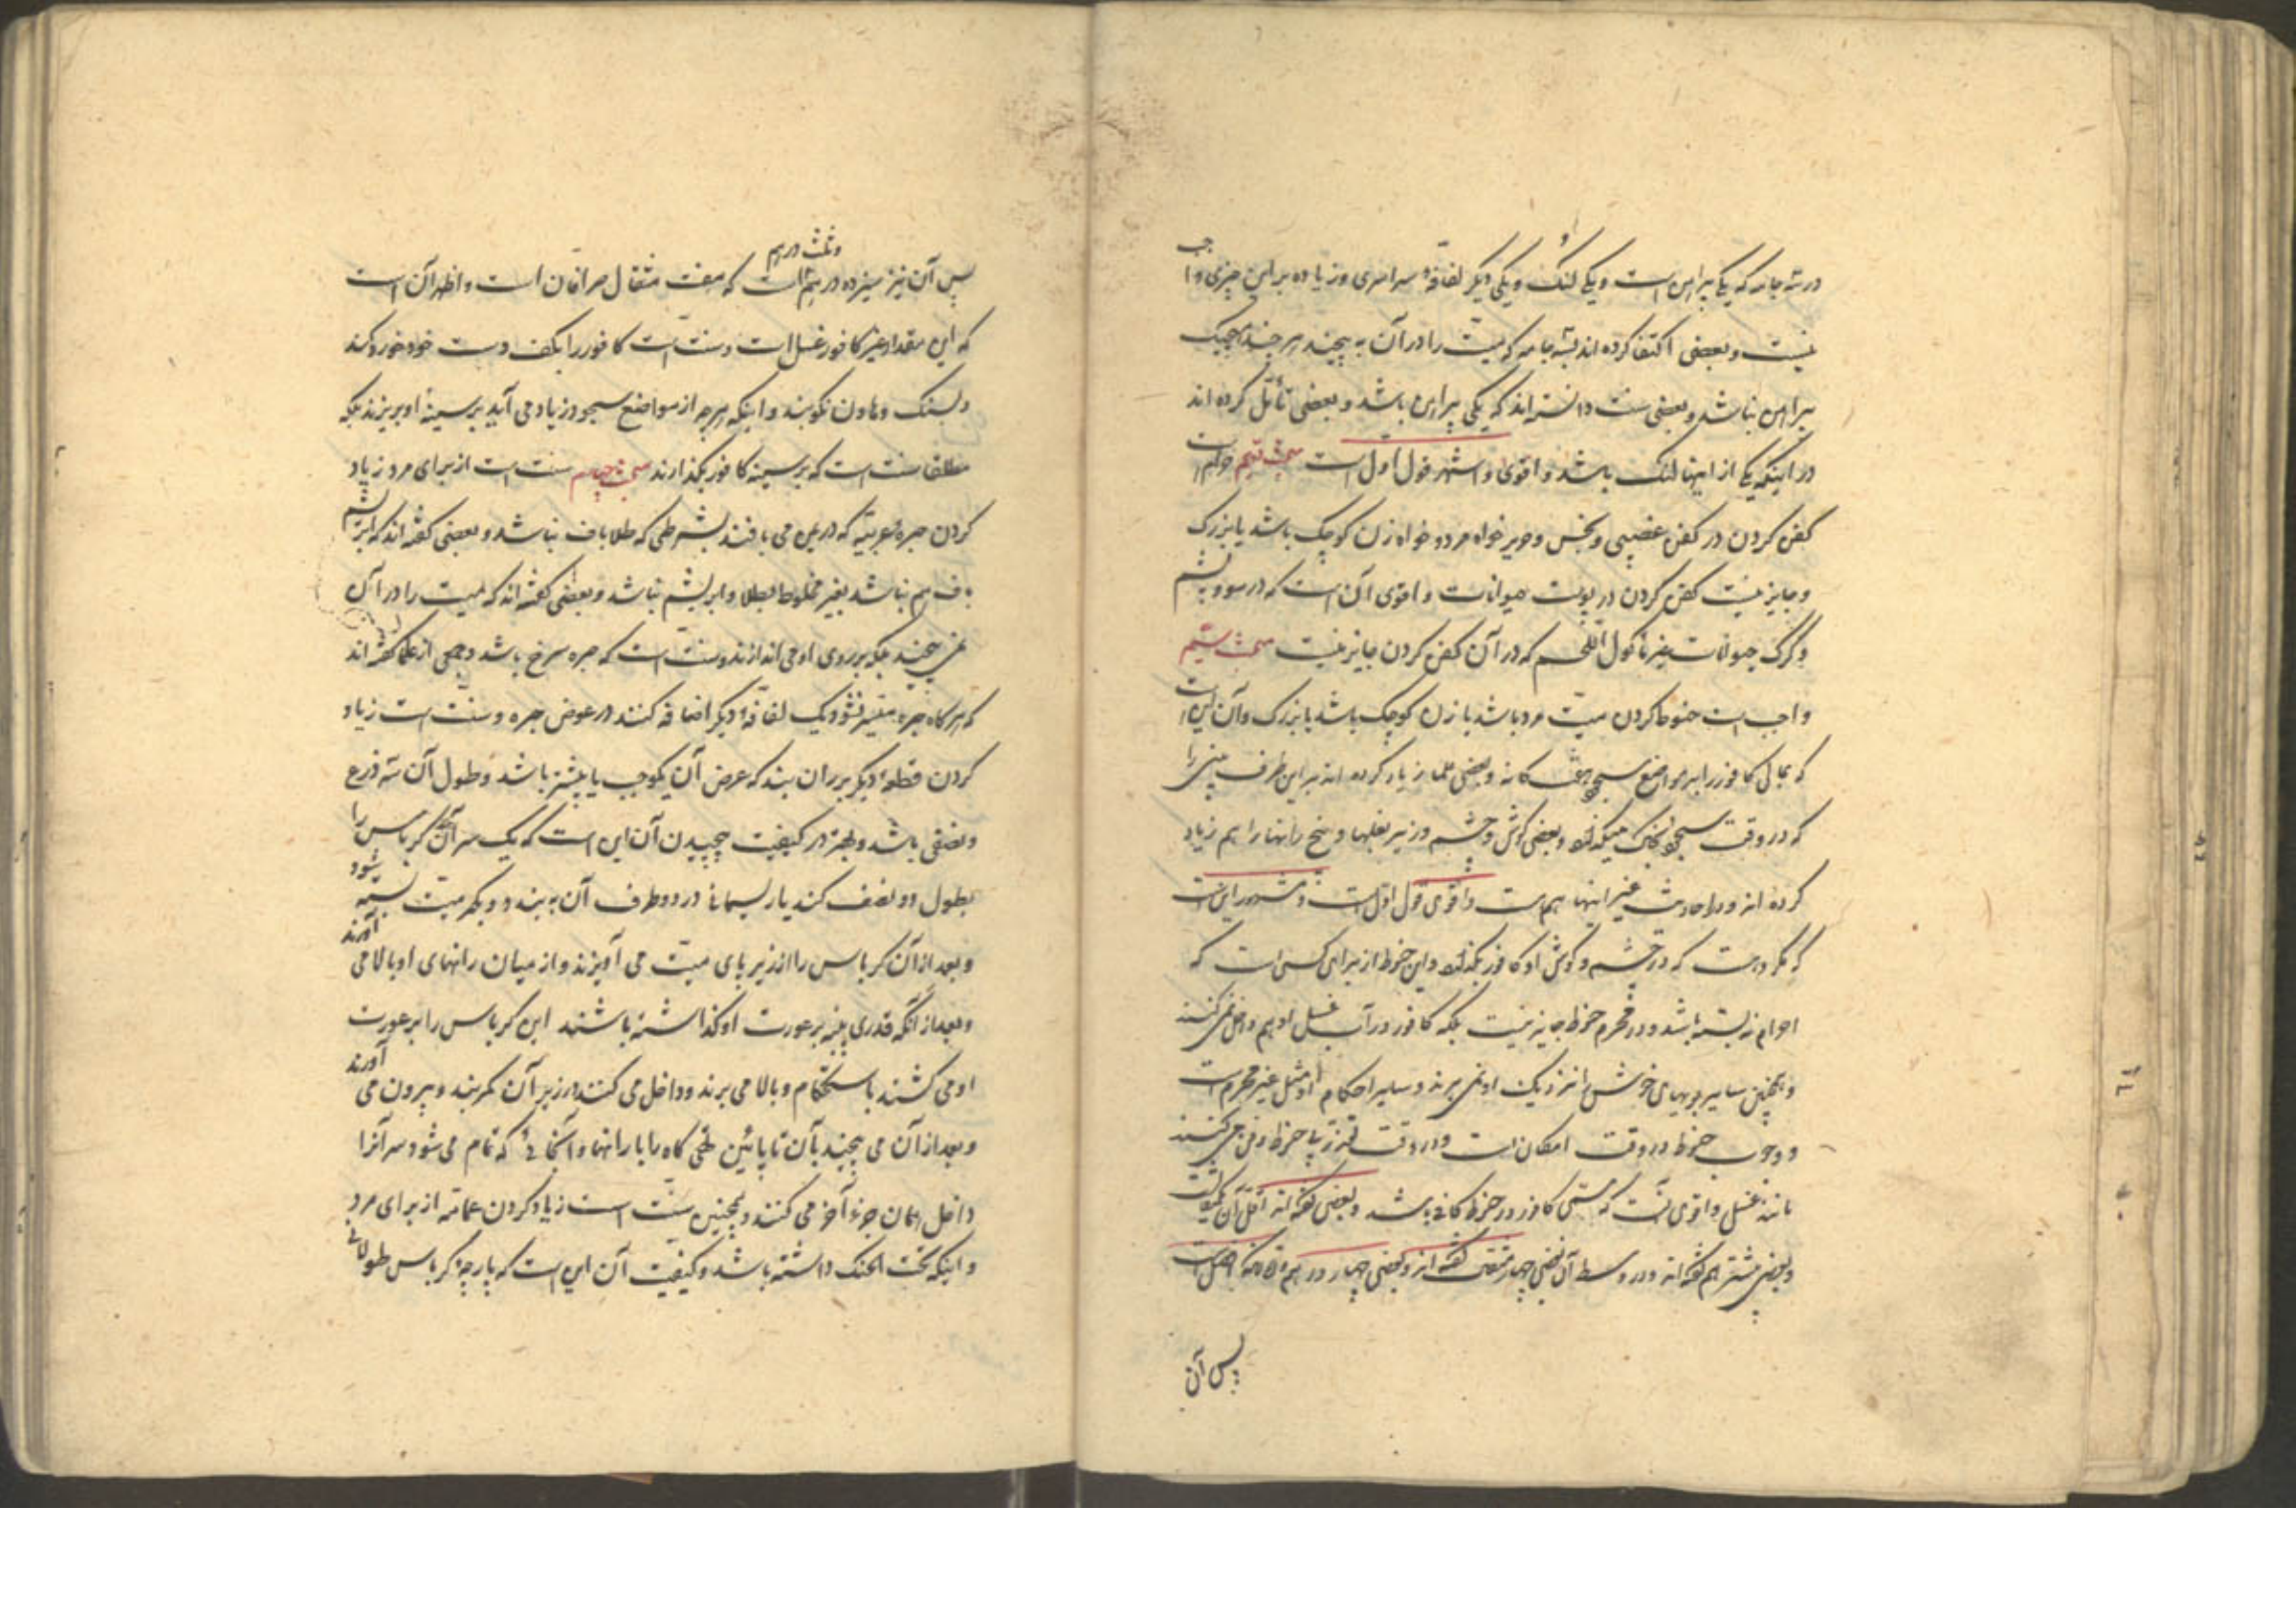 در سه جامه که یکی پیراهن است و یکی لنگ و یکی دیگر لفافهٔ سراسری و زیاده بر این چیزی واجب
نیست و بعضی اکتفا کرده‌اند بسه جامه که میت را در آن به پیچند هر چند هیچیک
پیراهن نباشد و بعضی سنت دانسته‌اند که یکی پیراهن باشد و بعضی تأمّل کرده‌اند
در اینکه یکی از اینها لنگ باشد و اقوی و اشهر قول اول است مبحث حرام است
کفن کردن در کفن غصبی و نجس و حریر خواه مرد و خواه زن کوچک باشد یا بزرگ
و جایز نیست کفن کردن در پوست حیوانات و اقوی آن است که در مو و پشم
و کرک حیوانات غیر ماکول اللحم که در آن کفن کردن جایز نیست مبحث
واجب است حنوط کردن میت مرد باشد یا زن کوچک باشد یا بزرگ و آن این است
که بمالی کافور را بر مواضع سجود هفتگانه و بعضی علما زیاد کرده‌اند بر این طرف بینی را
که در وقت سجود بخاک میگذارد و بعضی گوش و چشم و زیر بغلها و بیخ رانها را هم زیاد
کرده‌اند و در احادیث غیر اینها هم هست و اقوی قول اول است و مشهور این است
که مکروه است که در چشم و گوش او کافور بگذارند و این حنوط از برای کسی است که
احرام نه بسته باشد و در محرم حنوط جایز نیست بلکه کافور در آب غسل او هم داخل نمی‌کنند
و همچنین سایر بویهای خوش را نزدیک او نمی‌برند و سایر احکام او مثل غیر محرم است
و وجوب حنوط در وقت امکان است و در وقت بی حنوط دفن می‌کنند
مانند غسل و اقوی آنست که مسمّی کافور در حنوط کافی باشد و بعضی گفته‌اند اقل آن یکمثقال است
و بعضی بیشتر هم گفته‌اند و در وسط آن بعضی چهار مثقال گفته‌اند و بعضی چهار درهم و اما آنکه افضل است
پس آن
وثلث درهم
پس آن نیز سیزده درهم است که هفت مثقال صرافان است و اظهر آن است
که این مقدار غیر کافور غسل است و سنت است کافور را بکف دست خود خورد کند
و بسنگ و هاون نکوبند و اینکه هر چه از مواضع سجود زیاد می آید بر سینهٔ او بریزند بلکه
مطلقا سنت است که بر سینه کافور بگذارند مبحث چهارم سنت است از برای مرد زیاد
کردن حبرهٔ عبریّه که در یمن می بافند بشرطی که طلا باف نباشد و بعضی گفته‌اند که ابریشم
باف هم نباشد یعنی مخلوط بطلا و ابریشم نباشد و بعضی گفته‌اند که میت را در آن
نمی پیچند بلکه بر روی او می اندازند و سنت است که حبره سرخ باشد و جمعی از علما گفته‌اند
که هر گاه حبره میسر نشود یک لفافهٔ دیگر اضافه کنند در عوض حبره و سنّت است زیاد
کردن قطعهٔ دیگر بر ران بند که عرض آن یکوجب یا بیشتر باشد و طول آن سه ذرع
و نصفی باشد و بهتر در کیفیت پیچیدن آن این است که یک سر آن کرباس را
بطول دو نصف کنند یا ریسمانی در دو طرف آن به بندد و بکمر میت بسته شود
و بعد از آن کرباس را از زیر پای میت می آویزند و از میان رانهای او بالا می آورند
و بعد از آنکه قدری پنبه بر عورت او گذاشته باشند این کرباس را بر عورت
او می کشند باستحکام و بالا می برند و داخل می کنند در زیر آن کمربند و بیرون می آورند
و بعد از آن می پیچند بآن تا پائین گاه را با رانها و آنجائی که تمام می شود سر آنرا
داخل همان جزء آخر می کنند و همچنین سنّت است زیاد کردن عمامه از برای مرد
و اینکه تحت الحنک داشته باشد و کیفیت آن این است که پارچهٔ کرباس طولانی